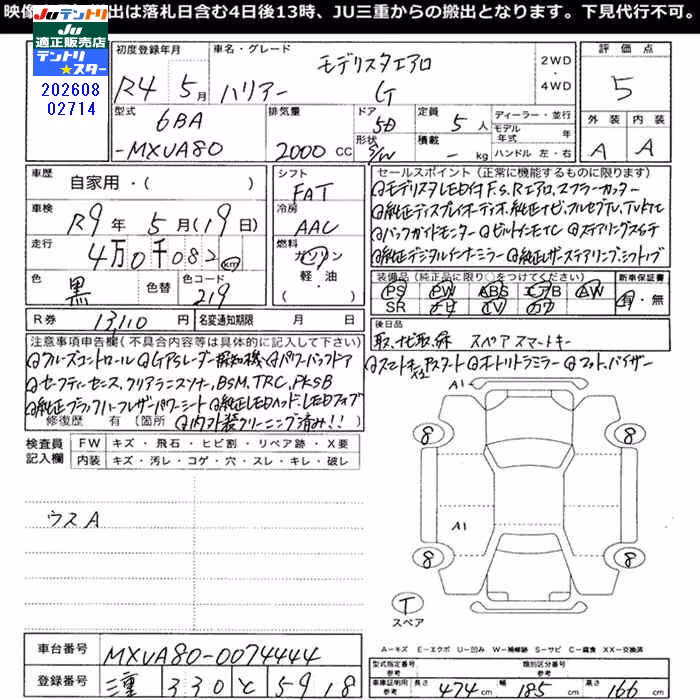 映像 出は落札日含む4日後13時、JU三重からの搬出となります。下見代行不可。
Juテントリ
JU
適正販売店
テントリ
★スター
202608
02714
初度登録年月
R4 5月
車名・グレード
モデリスタエアロ
ハリアー G
2WD
・
4WD
評価点
5
外装 内装
A A
型式
6BA
-MXUA80
排気量
2000 CC
ドア
5D
形状
S/W
定員
5人
積載
- kg
ディーラー・並行
モデル
年式 年
ハンドル 左・右
車歴
自家用・( )
車検
R9年 5月(19日)
走行
4万0千082 km
色
黒
色替
色コード
219
シフト
FAT
冷房
AAC
燃料
ガソリン
軽・油
( )
R券 13,110円
名変通知期限 月 日
セールスポイント(正常に機能するものに限ります)
◎モデリスタLED付F.S.Rエアロ、マフラーカッター
◎純正ディスプレイオーディオ、純正ナビ、フルセグTV、TVKTC
◎バックガイドモニター ◎ビルトインETC ◎ステアリングスイッチ
◎純正デジタルインナーミラー ◎純正レザーステアリング、シフトノブ
装備品(純正品に限り○をつけてください)
PS PW ABS エアB AW
SR ナビ TV カワ
新車保証書
有・無
後日品
取、ナビ取、保 スペアスマートキー
◎スマートキー、Pスタート ◎オートリトラミラー ◎マット、バイザー
注意事項申告欄(不具合内容等は具体的に記入して下さい)
◎クルーズコントロール ◎GPSレーダー探知機 ◎パワーバックドア
◎セーフティーセンス、クリアランスソナー、BSM、TRC、PKSB
◎純正ブラックハーフレザーパワーシート ◎純正LEDヘッド、LEDフォグ
修復歴 有 (箇所 ◎内外装クリーニング済み!!)
検査員
記入欄
FW キズ・飛石・ヒビ割・リペア跡・X要
内装 キズ・汚レ・コゲ・穴・スレ・キレ・破レ
ウスA
A1
8 8
A1
8 8
T
スペア
A-キズ E-エクボ U-凹み W-補修跡 S-サビ C-腐食 XX-交換済
車台番号 MXUA80-0074444
登録番号 三重 330 と 5918
型式指定番号
参考
類別区分番号
参考
車庫証明用
参考
長さ 474cm 幅 185cm 高さ 166cm